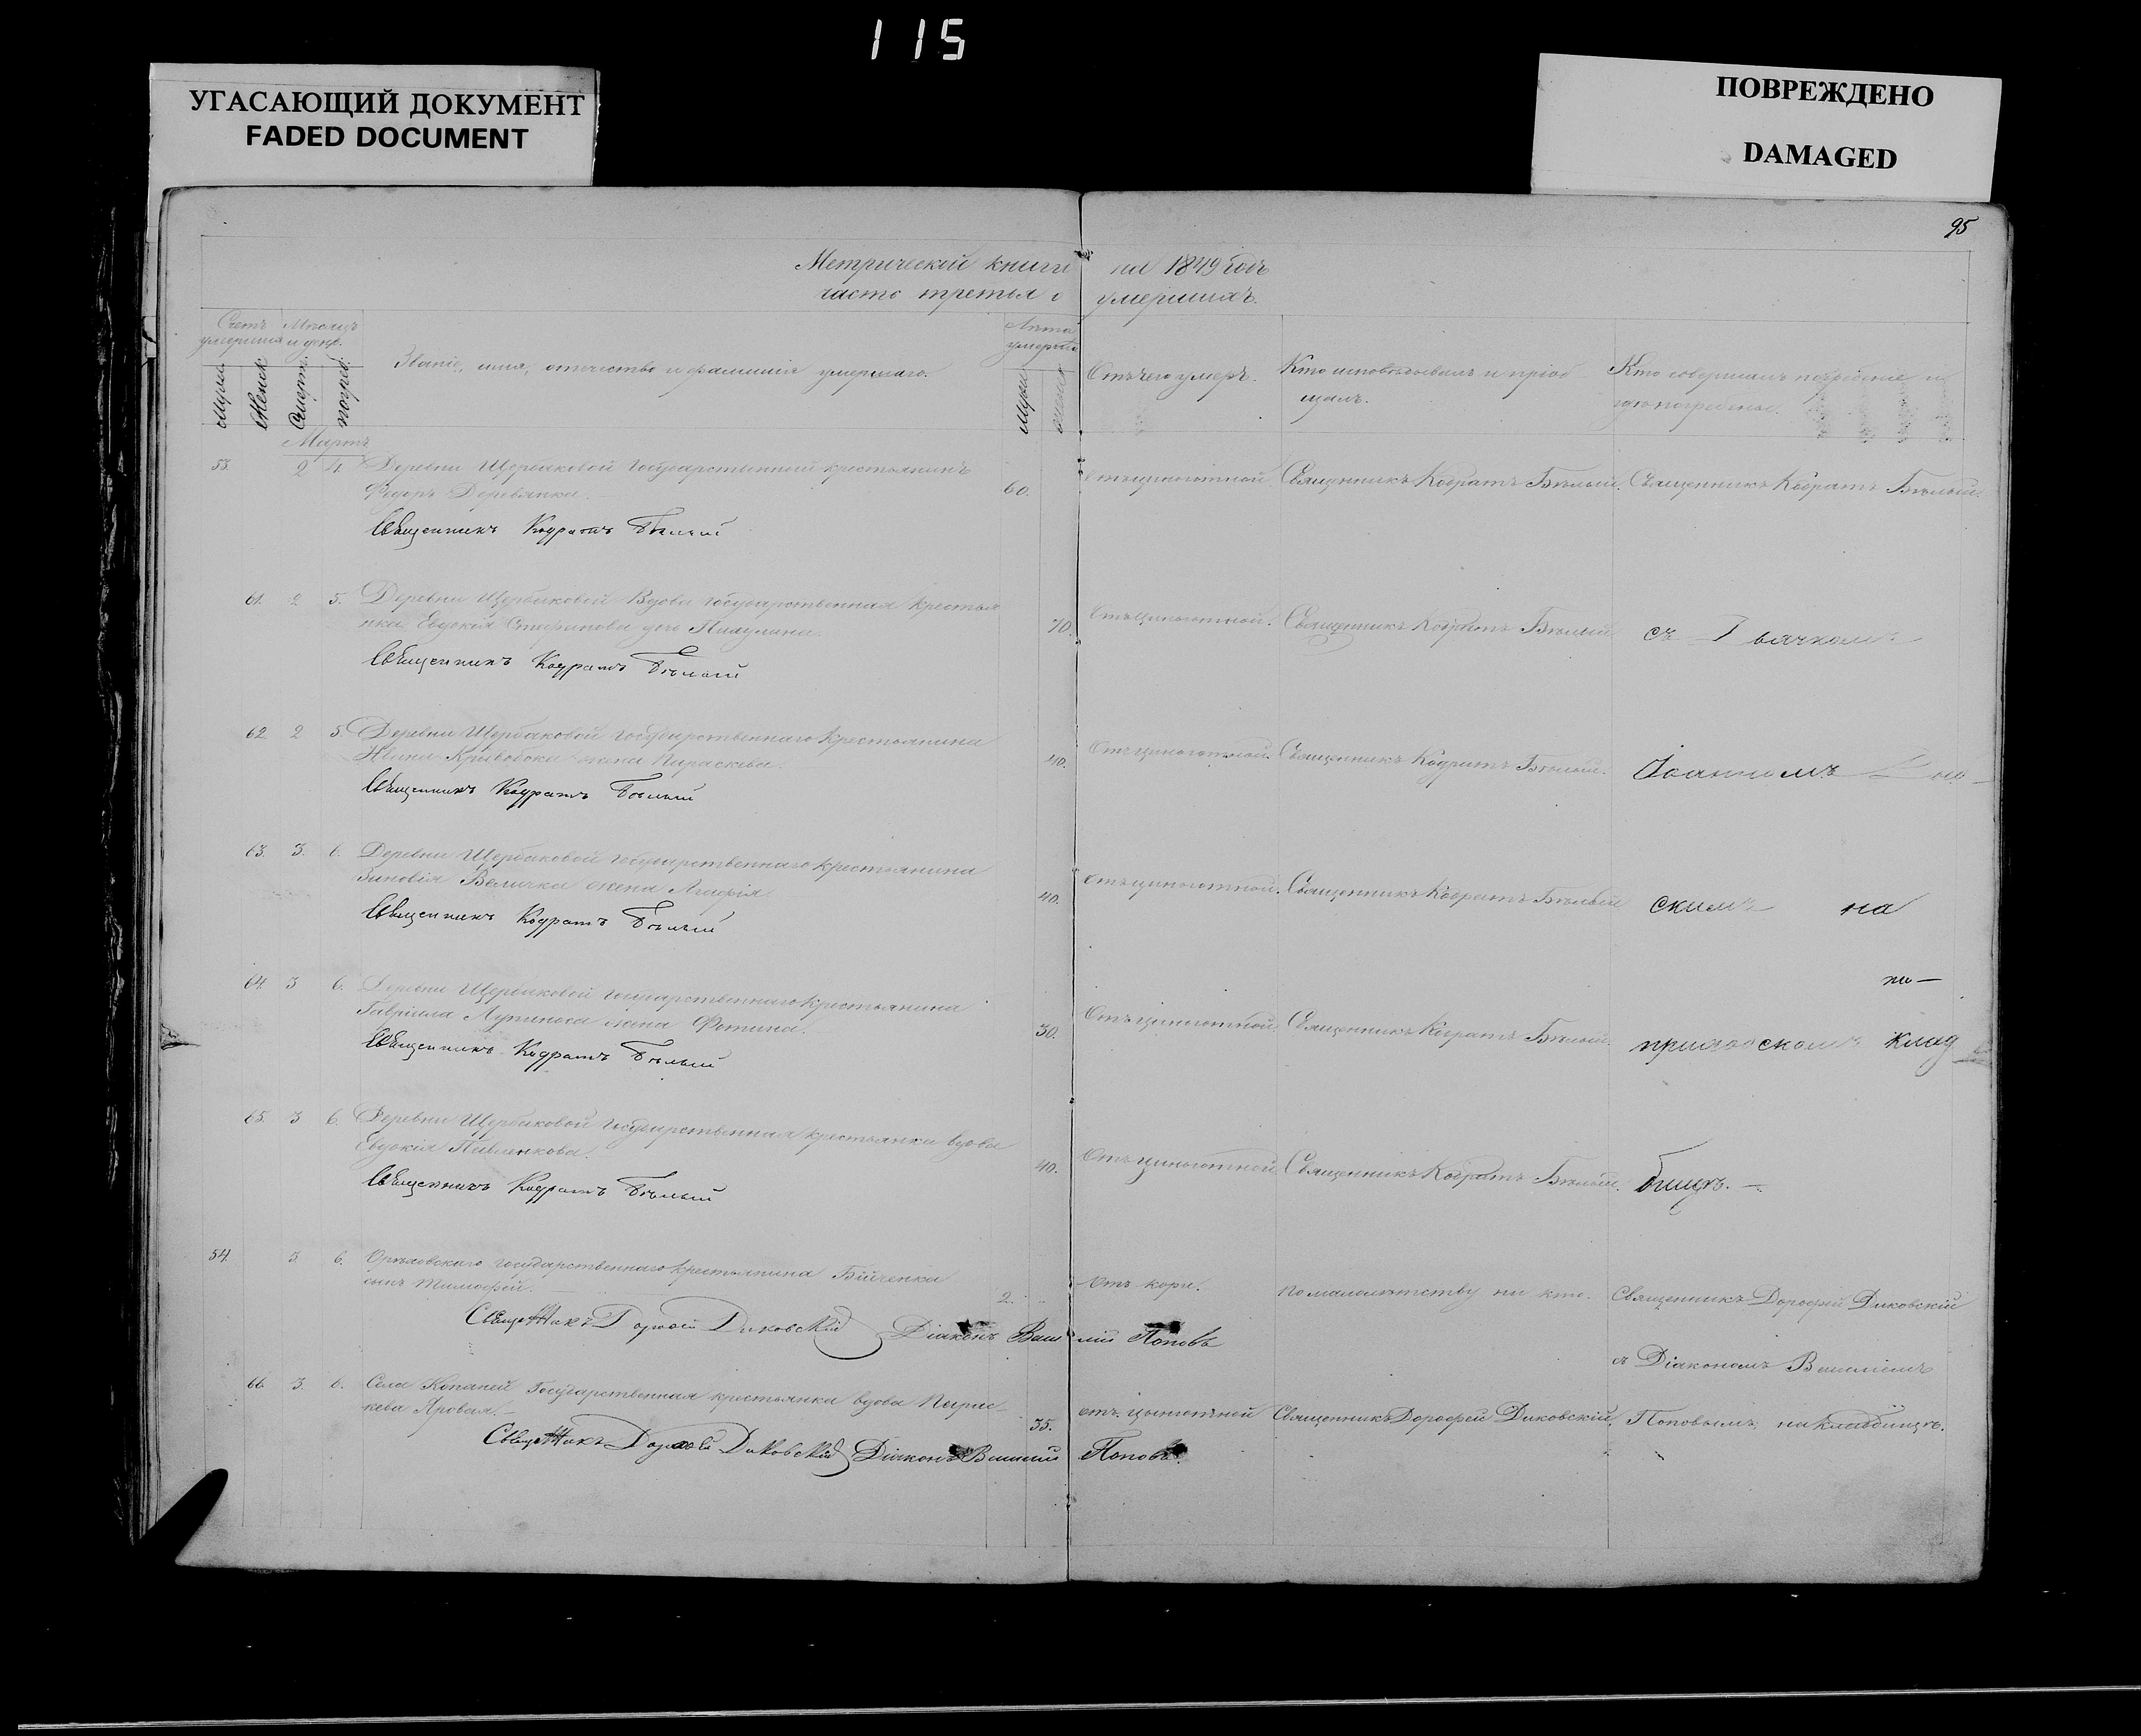 115
УГАСАЮЩИЙ ДОКУМЕНТ
FADED DOCUMENT
ПОВРЕЖДЕНО
DAMAGED
95
Метрической книги на 1849 годъ
часть третья о умершихъ.
Счетъ умершихъ
Мѣсяцъ и день.
Званіе, имя, отечество и фамилія умершаго.
Лѣта умершаго
Отъ чего умеръ.
Кто исповѣдывалъ и пріобщалъ.
Кто совершалъ погребеніе и
гдѣ погребены.
Мужск
Женск
Смерт.
погреб.
Мужск
женск
Мартъ
53. 2 4. Деревни Щербаковой Государственный крестьянинъ
Федоръ Деревянка. 60. отъ цынготной Священникъ Кодратъ Бѣлый. Священникъ Кодратъ Бѣлый
Священникъ Кодратъ Бѣлый
61. 2 5. Деревни Щербаковой Вдова государственная крестья
нка Евдокія Стефанова дочь 70. Отъ цынготной. Священникъ Кодратъ Бѣлый съ Дьячкомъ
Священникъ Кодратъ Бѣлый
62. 2 5. Деревни Щербаковой государственнаго крестьянина
Ивана Кривобока жена Параскева. 40. Отъ цынготной. Священникъ Кодратъ Бѣлый. Іоанномъ
Священникъ Кодратъ Бѣлый
63. 3. 6. Деревни Щербаковой государственнаго крестьянина
Зиновія Величка жена Агафія. 40. отъ цынготной. Священникъ Кодратъ Бѣлый скимъ на
Священникъ Кодратъ Бѣлый
64. 3 6. Деревни Щербаковой государственнаго крестьянина
Гавріила Лупиноса жена Фотина. 30. Отъ цынготной. Священникъ Кодратъ Бѣлый. приходскомъ клад
Священникъ Кодратъ Бѣлый
65. 3 6. Деревни Щербаковой государственная крестьянка вдова
Евдокія Павленкова. 40. Отъ цынготной Священникъ Кодратъ Бѣлый. бищѣ.—
Священникъ Кодратъ Бѣлый
54. 3 6. Орѣховскаго государственнаго крестьянина Бійченка
сынъ Тимофей. 2. отъ кори. по малолѣтству ни кто. Священникъ Дорофей Диковскій
Священникъ Дорофей Диковскій Діаконъ Василій Поповъ
съ Діакономъ Василіемъ
66. 3. 6. Села Копаней Государственная крестьянка вдова Парас-
кева Яровая.— 35. отъ цынготной Священникъ Дорофей Диковскій. Поповымъ, на кладбищѣ.
Священникъ Дорофей Диковскій Діаконъ Василий Поповъ.